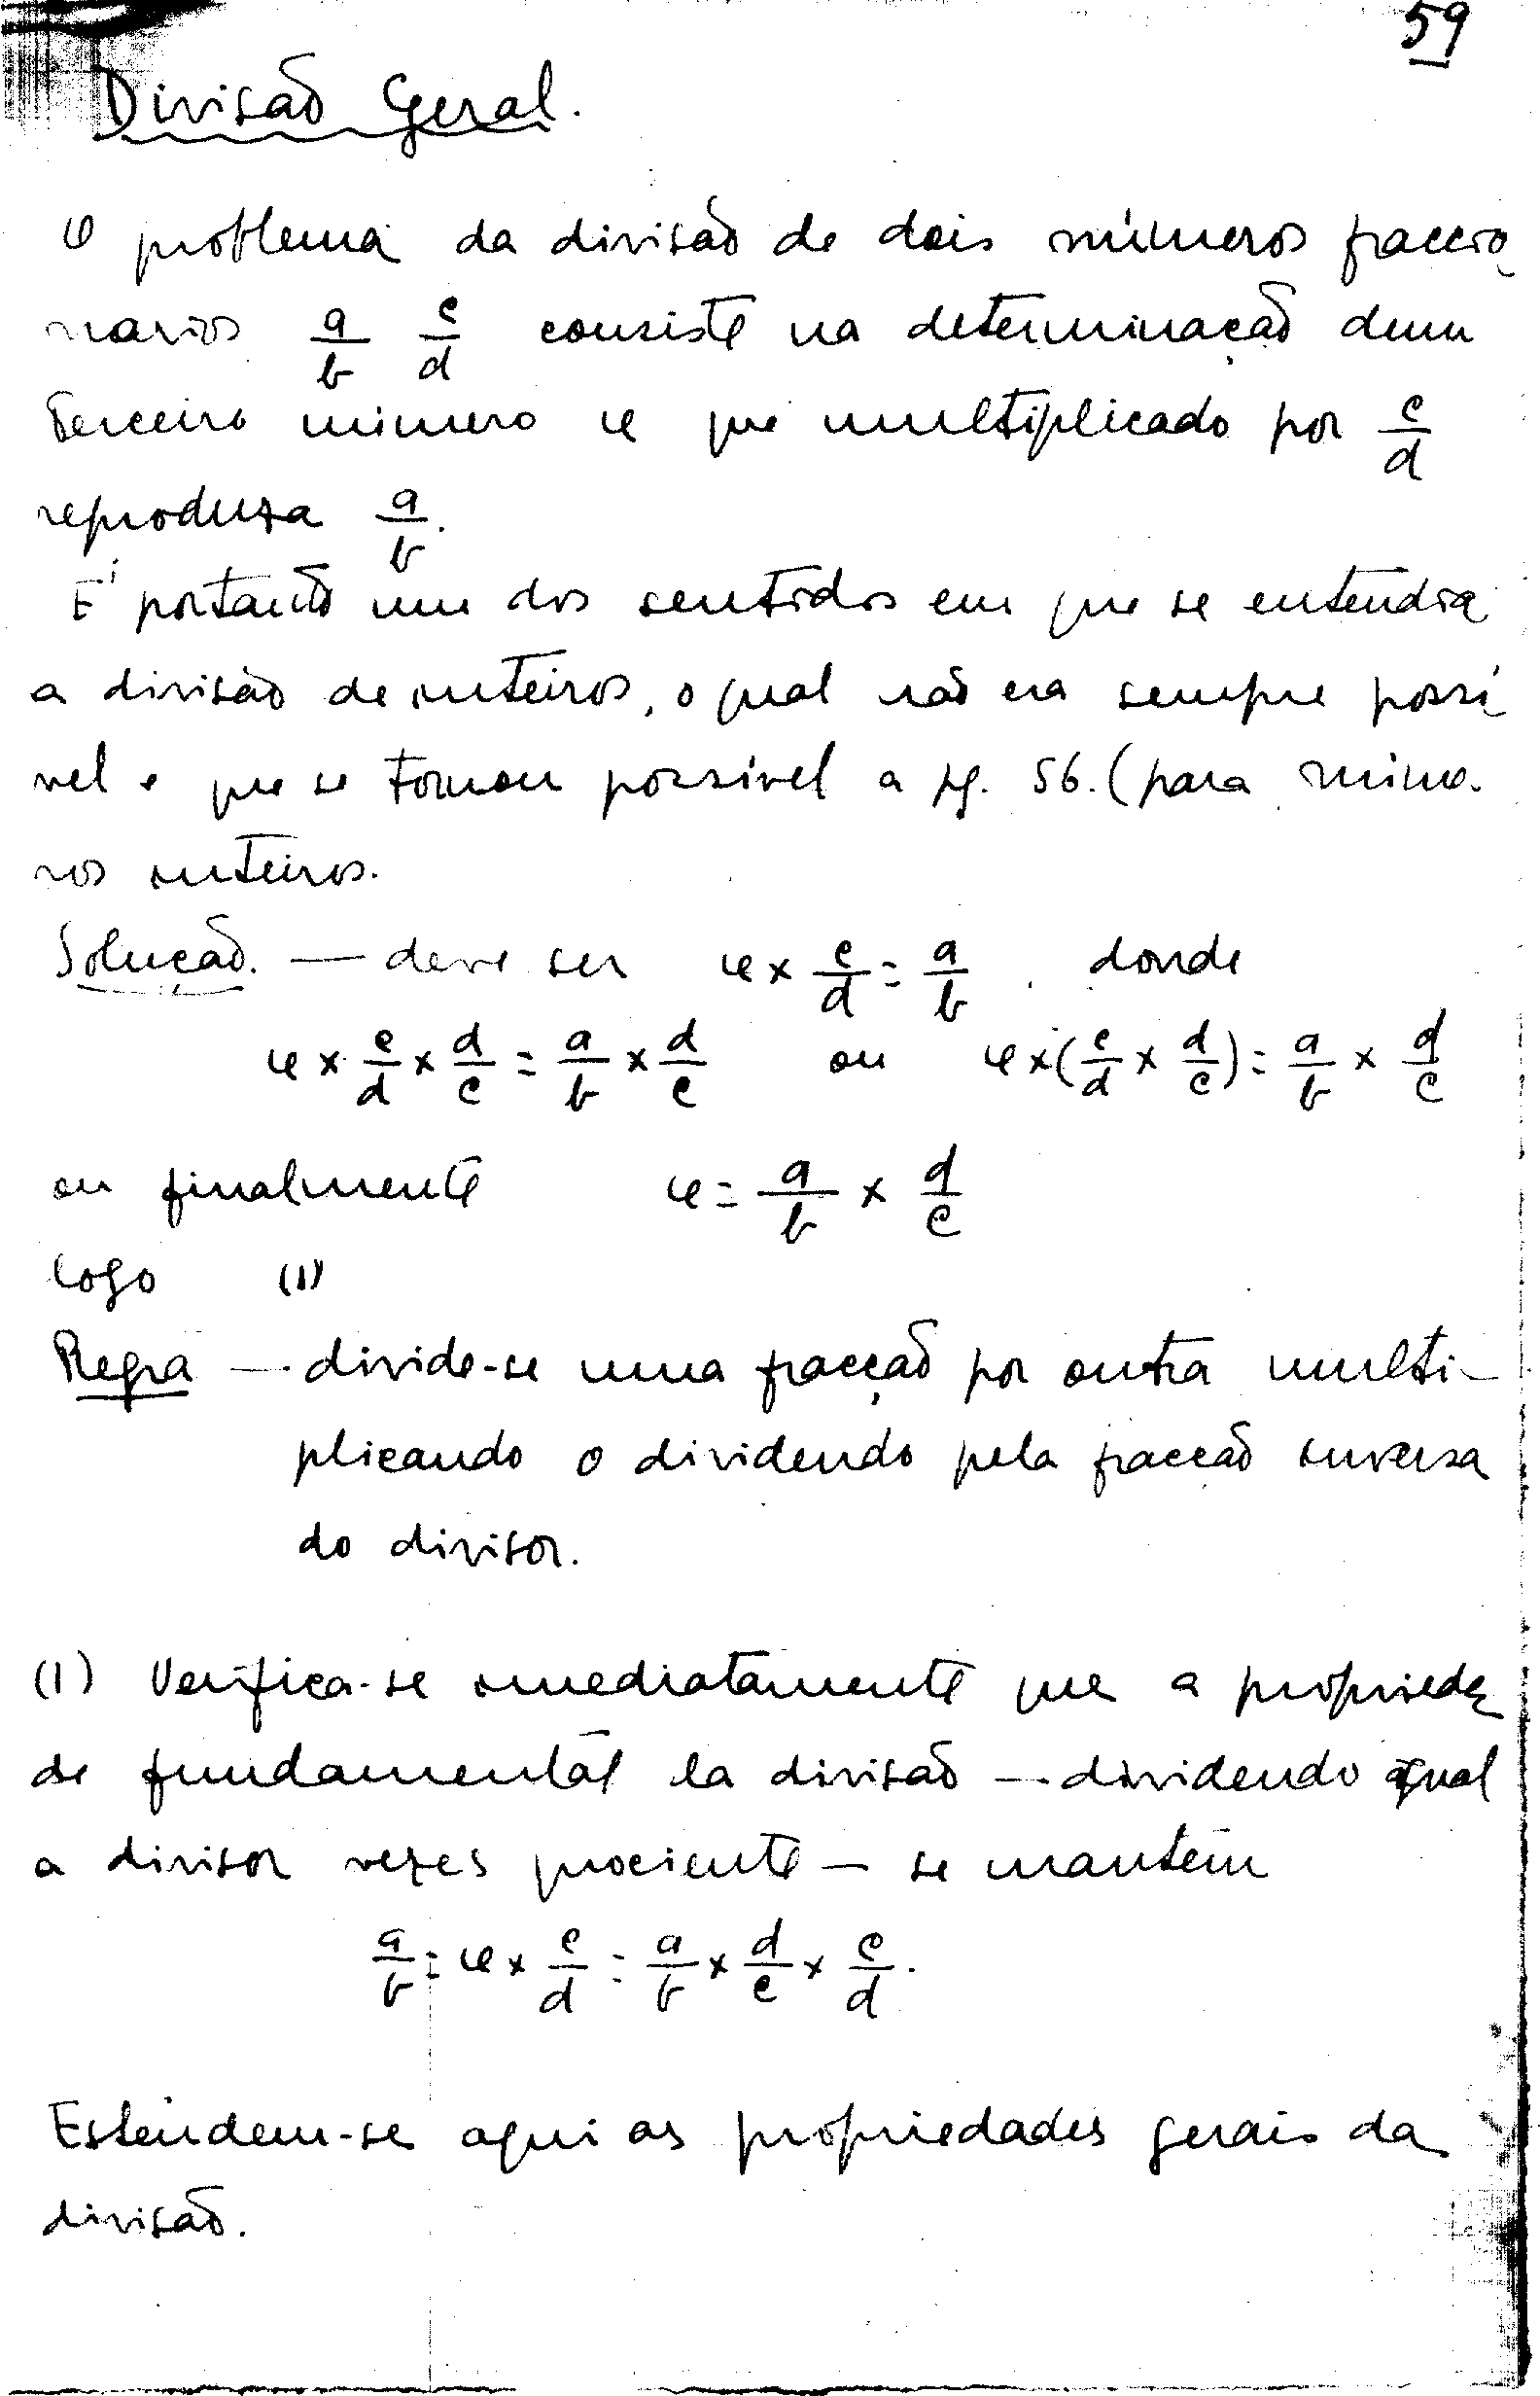 59
Divisão Geral.
O problema da divisão de dois números fraccio
narios a/b c/d consiste na determinação dum
terceiro número φ que multiplicado por c/d
reproduza a/b.
É portanto um dos sentidos em que se entendia
a divisão de inteiros, o qual não era sempre possí
vel e que se tornou possível a pg. 56. (para núme.
ros inteiros.
Solução. — deve ser φ × c/d = a/b . donde
φ × c/d × d/c = a/b × d/c ou φ × (c/d × d/c) = a/b × d/c
ou finalmente φ = a/b × d/c
Logo (1)
Regra — divide-se uma fracção por outra multi-
plicando o dividendo pela fracção inversa
do divisor.
(1) Verifica-se imediatamente que a proprieda
de fundamental da divisão — dividendo igual
a divisor vezes quociente — se mantém
a/b = φ × c/d = a/b × d/c × c/d.
Estendem-se aqui as propriedades gerais da
divisão.